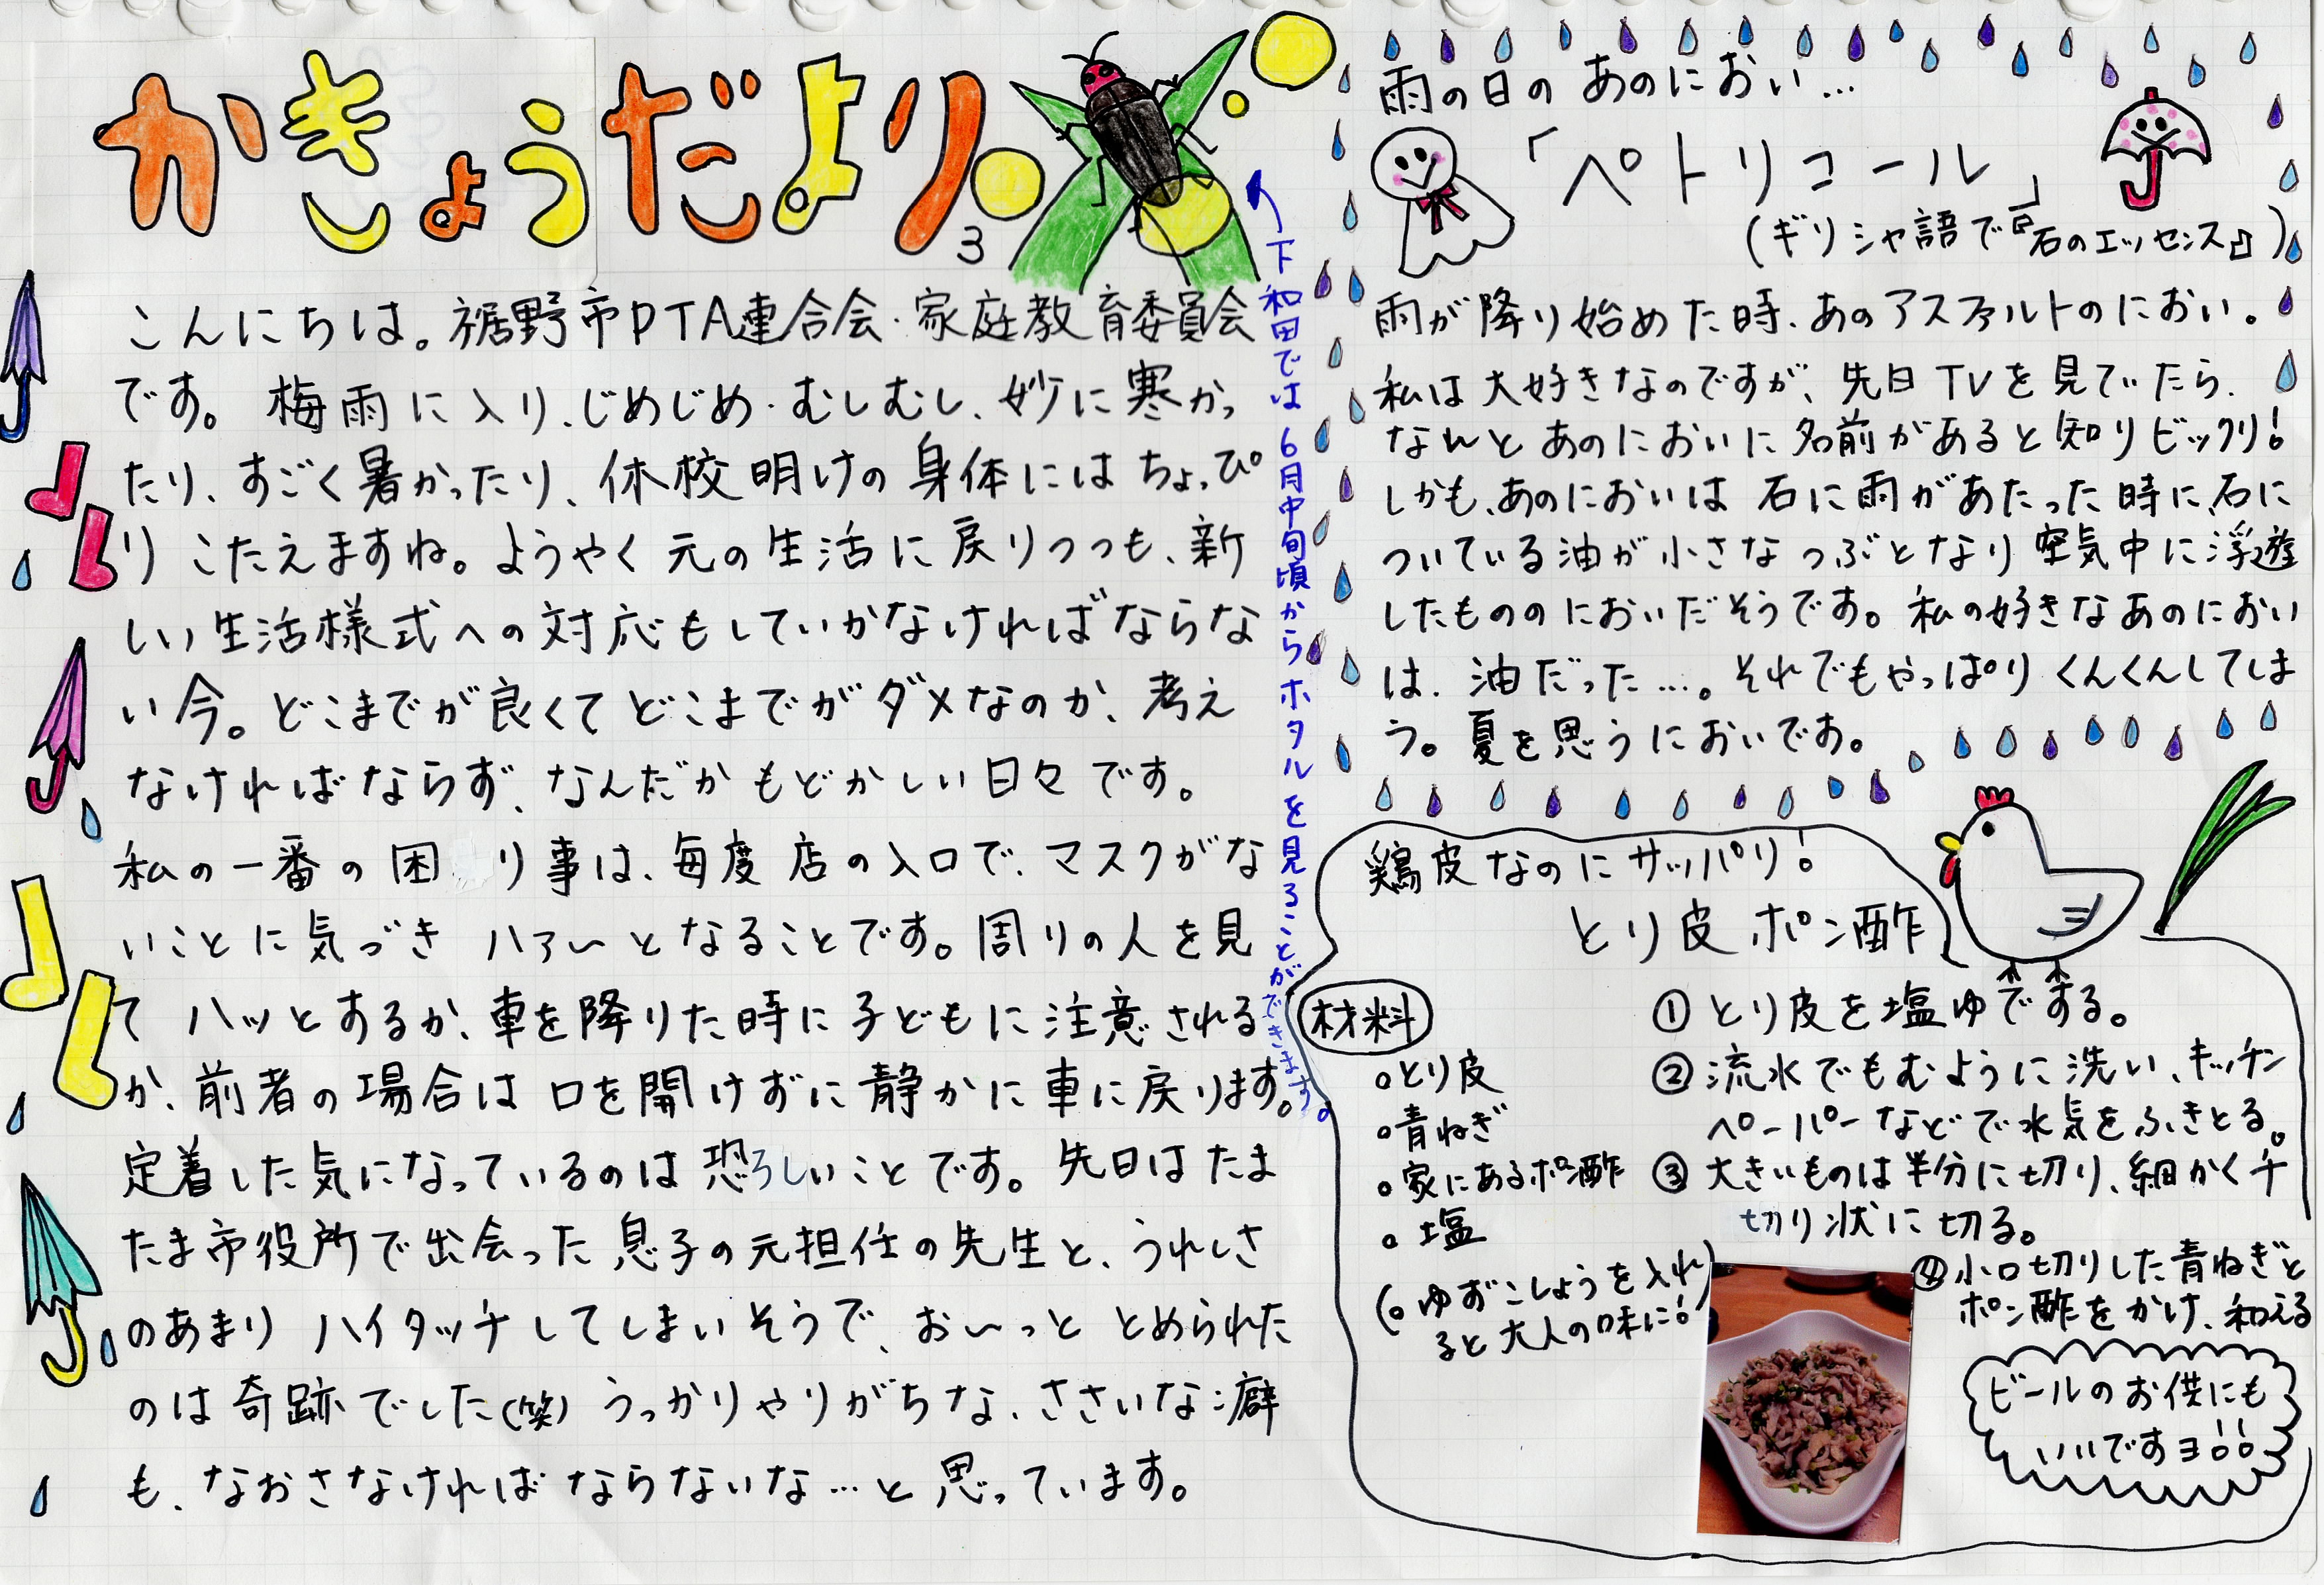 かきょうだより 3
こんにちは。裾野市PTA連合会・家庭教育委員会
です。梅雨に入り、じめじめ・むしむし、妙に寒かっ
たり、すごく暑かったり、休校明けの身体にはちょっぴ
りこたえますね。ようやく元の生活に戻りつつも、新
しい生活様式への対応もしていかなければならな
い今。どこまでが良くてどこまでがダメなのか、考え
なければならず、なんだかもどかしい日々です。
私の一番の困り事は、毎度店の入口で、マスクがな
いことに気づき ハァ〜となることです。周りの人を見
て ハッとするか、車を降りた時に子どもに注意される
か、前者の場合は口を開けずに静かに車に戻ります。
定着した気になっているのは恐ろしいことです。先日はたま
たま市役所で出会った息子の元担任の先生と、うれしさ
のあまり ハイタッチしてしまいそうで、お〜っと とめられた
のは奇跡でした(笑) うっかりやりがちな、ささいな癖
も、なおさなければならないな…と思っています。
下和田では6月中旬頃からホタルを見ることができます。
雨の日のあのにおい…
「ペトリコール」
(ギリシャ語で『石のエッセンス』)
雨が降り始めた時、あのアスファルトのにおい。
私は大好きなのですが、先日TVを見ていたら、
なんとあのにおいに名前があると知りビックリ!
しかも、あのにおいは石に雨があたった時に、石に
ついている油が小さなつぶとなり空気中に浮遊
したもののにおいだそうです。私の好きなあのにおい
は、油だった…。それでもやっぱりくんくんしてしま
う。夏を思うにおいです。
鶏皮なのにサッパリ!
とり皮ポン酢
材料
○とり皮
○青ねぎ
○家にあるポン酢
○塩
(○ゆずこしょうを入れ)
ると大人の味に!
① とり皮を塩ゆでする。
② 流水でもむように洗い、キッチン
ペーパーなどで水気をふきとる。
③ 大きいものは半分に切り、細かく千
切り状に切る。
④ 小口切りした青ねぎと
ポン酢をかけ、和える
ビールのお供にも
いいですヨ!!